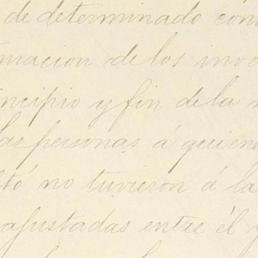 de determinado con
macion de los inve
incipio y fin de la
las personas á quien
ltó no tuvieron á la
ajustadas entre él y